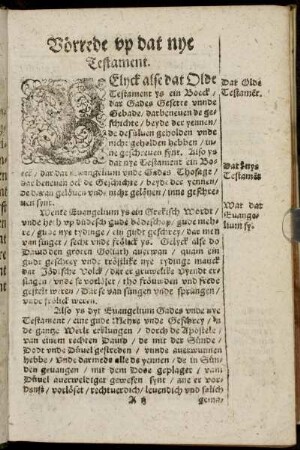 Vörrede vp dat nye
Testament.
Gelyck alse dat Olde
Testament ys ein Boeck /
dar Gades Gesette vnde
Gebade / darbeneuen de ge-
schichte / beyde der yennen /
de desüluen geholden vnde
nicht geholden hebben / inne
geschreuen synt. Also ys
dat nye Testament ein Bo-
eck / dar dat Euangelium vnde Gades Thosage /
darbeneuen ock de Geschichte / beyde der yennen /
de daran gelöuen vnde nicht gelöuen / inne geschre-
uen synt.
Wente Euangelium ys ein Grekisch Wordt /
vnde heth vp düdesch gude bödeschop / gude mehre /
gude nye tydinge / ein gudt geschrey / dar men
van singet / secht vnde frölick ys. Gelyck alse do
Dauid den groten Goliath auerwan / quam ein
gudt geschrey vnde tröstlike nye tydinge manck
dat Jödische Volck / dat er gruwelike Vyendt er-
slagen / vnde se vorlöset / tho fröuwden vnd frede
gestelt weren / Dar se van sungen vnde sprungen /
vnde frölick weren.
Also ys dyt Euangelium Gades vnde nye
Testament / eine gude Mehre vnde Geschrey / in
de gantze Werlt erklungen / dorch de Apostele /
van einem rechten Dauid / de mit der Sünde /
Dodt vnde Düuel gestreden / vnde auerwunnen
hebbe / Vnde darmede alle de yennen / de in Sün-
den geuangen / mit dem Dode geplaget / vam
Düuel auerweldiget gewesen synt / ane er vor-
denst / vorlöset / rechtuerdich / leuendich vnd salich
gema-
Dat Olde
Testamēt.
Wat dat nye
Testamēt
Wat dat
Euange-
lium sy.